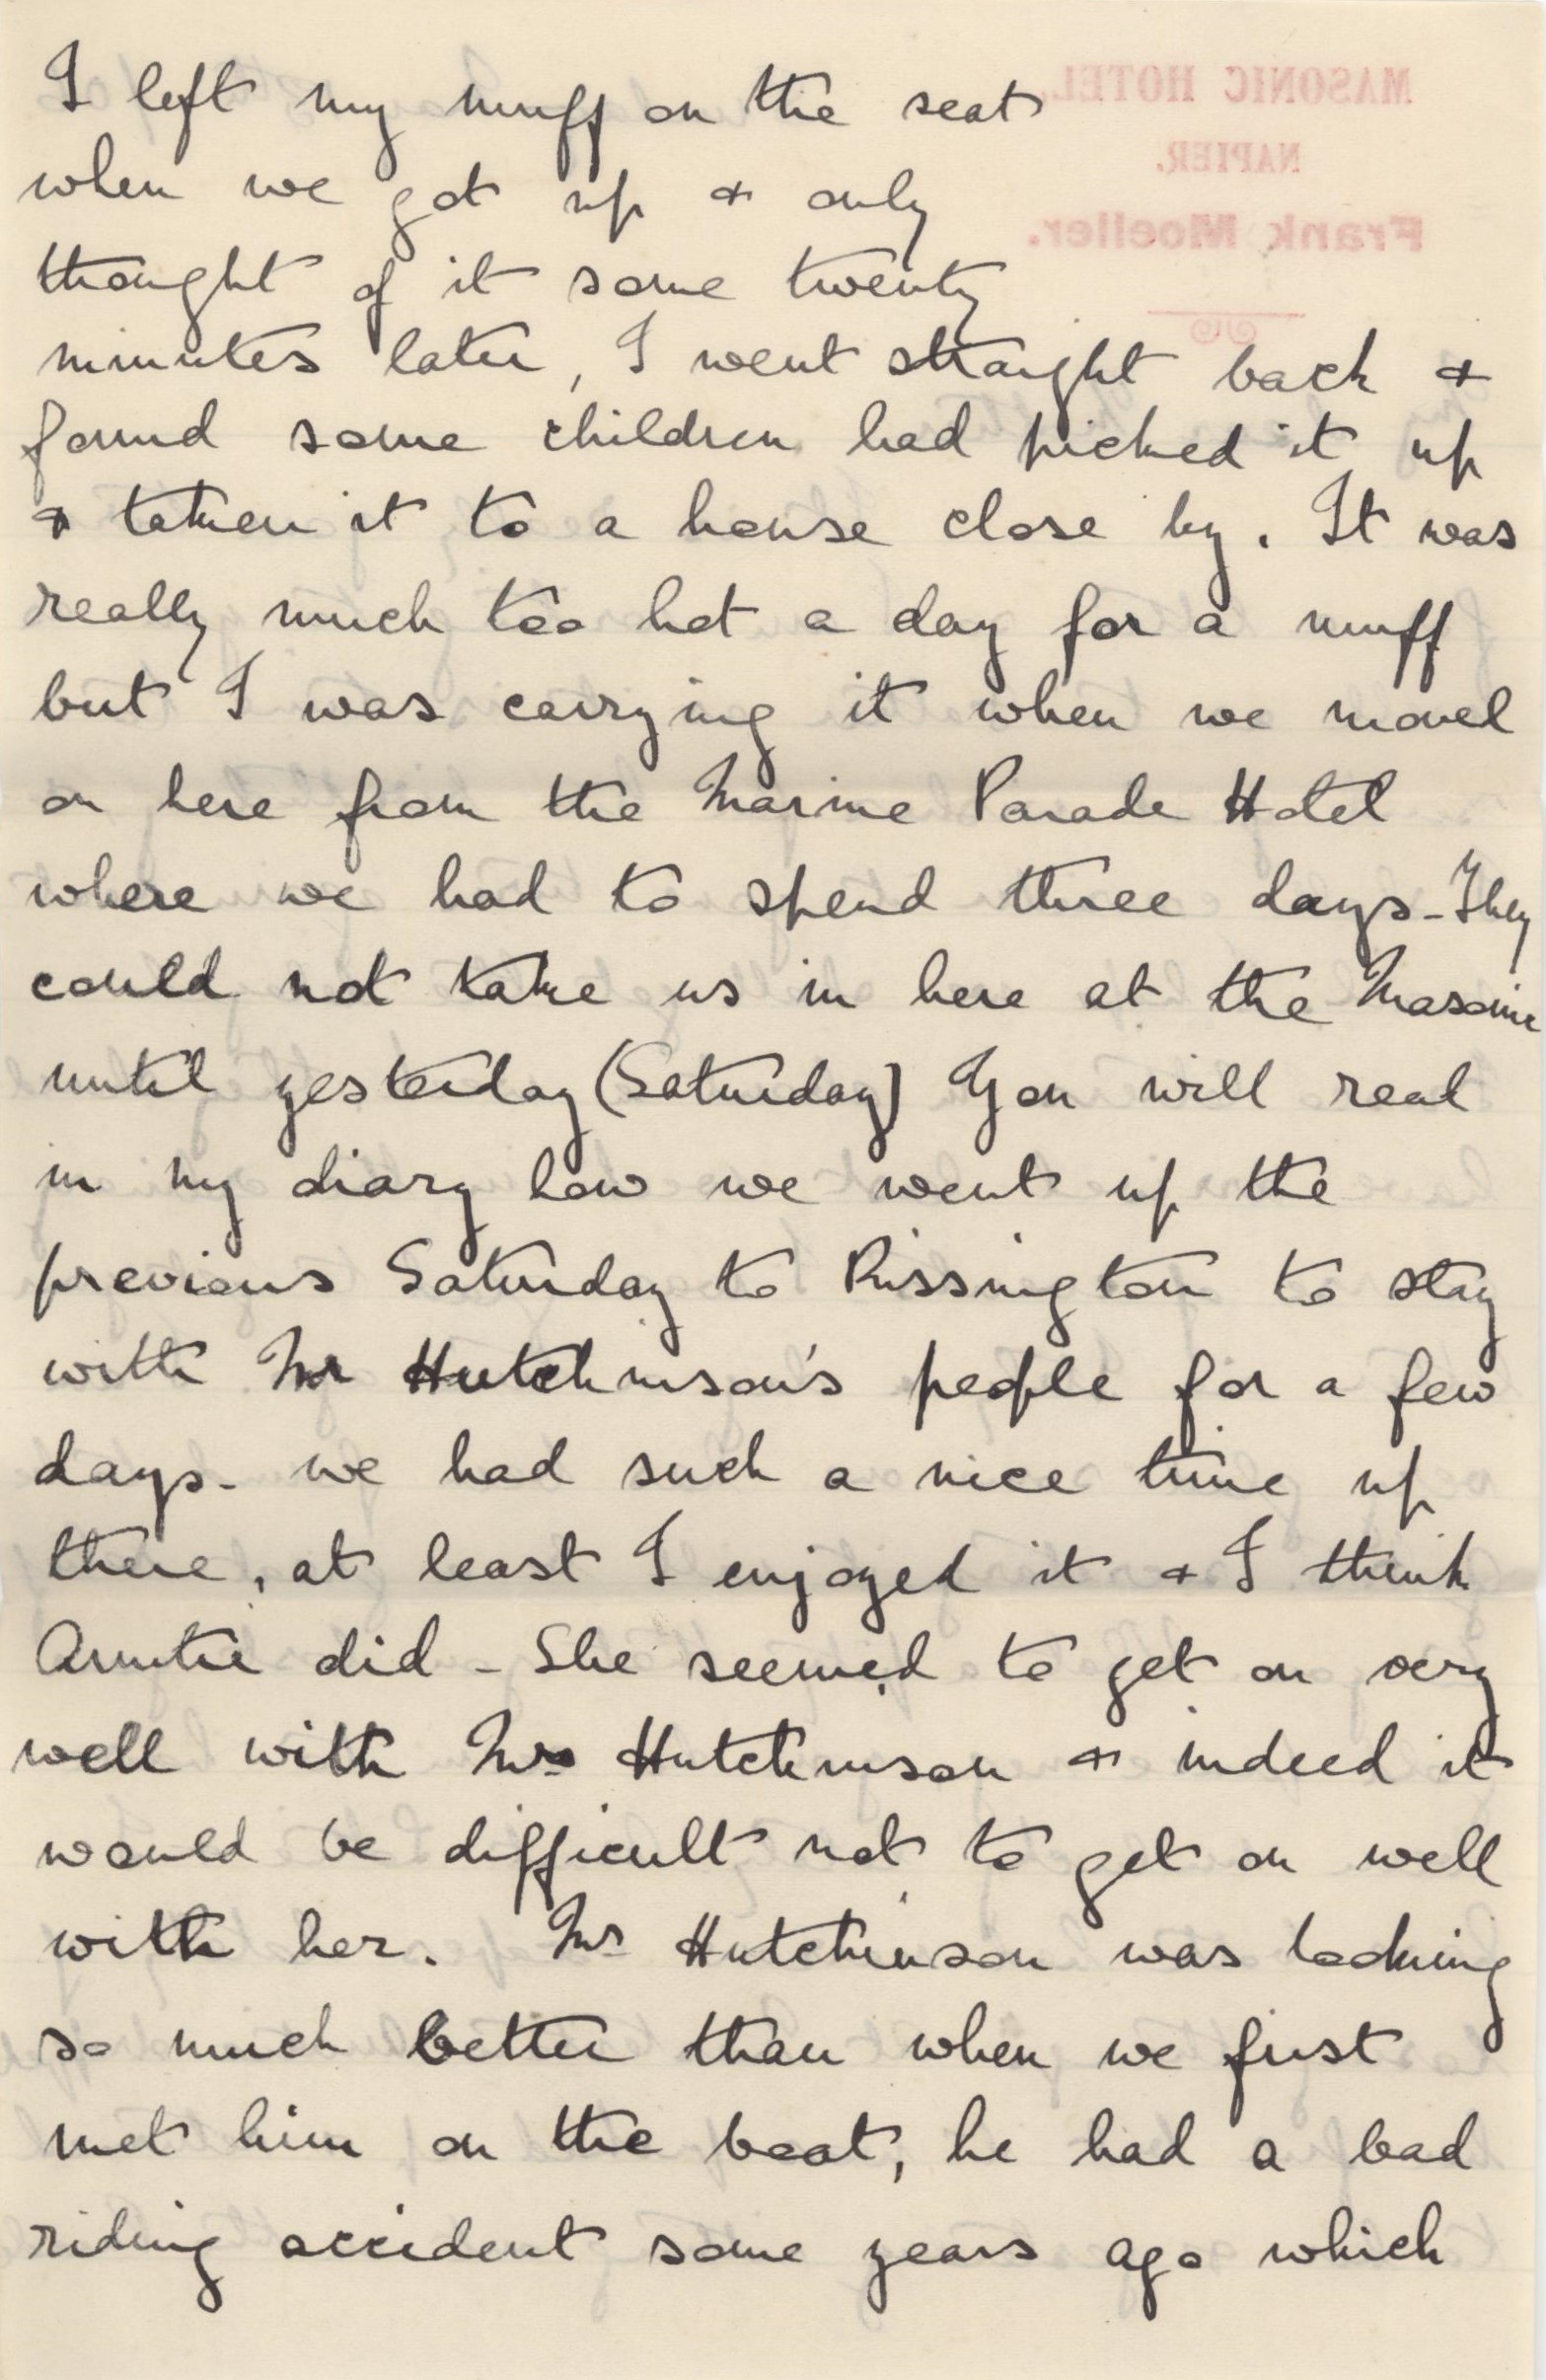 MASONIC HOTEL,
NAPIER.
Frank Moeller.
I left my muff on the seat
when we got up & only
thought of it some twenty
minutes later, I went straight back &
found some children had picked it up
& taken it to a house close by. It was
really much too hot a day for a muff
but I was carrying it when we moved
on here from the Marine Parade Hotel
where we had to spend three days - They
could not take us in here at the Masonic
until yesterday (Saturday) You will read
in my diary how we went up the
previous Saturday to Rissington to stay
with Mr Hutchinson's people for a few
days - we had such a nice time up
there, at least I enjoyed it & I think
Auntie did - She seemed to get on very
well with Mrs Hutchinson & indeed it
would be difficult not to get on well
with her. Mr Hutchinson was looking
so much better than when we first
met him on the boat, he had a bad
riding accident some years ago which